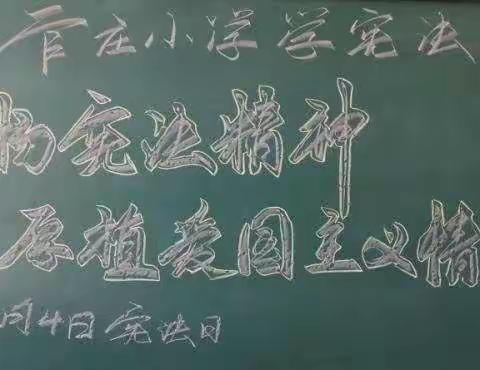 官庄小学学宪法
宪法精神
厚植爱国主义情
月4日 宪法日